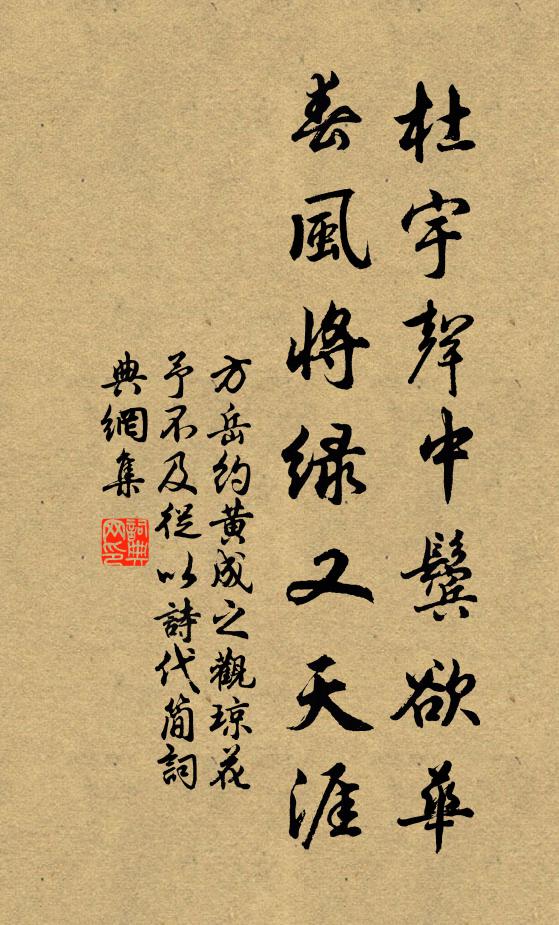 杜宇聲中鬢欲華
春風將緑又天涯
方岳約黄成之觀琼花
予不及從以詩代簡詞
典網集
詞典
网印